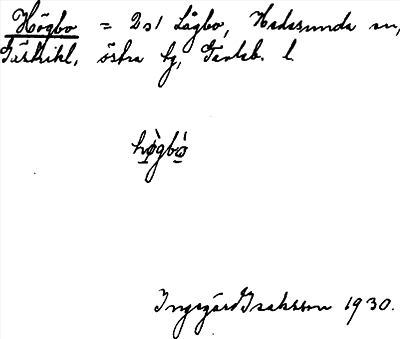 Högbo = 2 o 1 Lågbo, Hedesunda sn,
Gästrikl, östra tg, Gävleb. l.
hø̀gbó
Ingegärd Isaksson 1930.